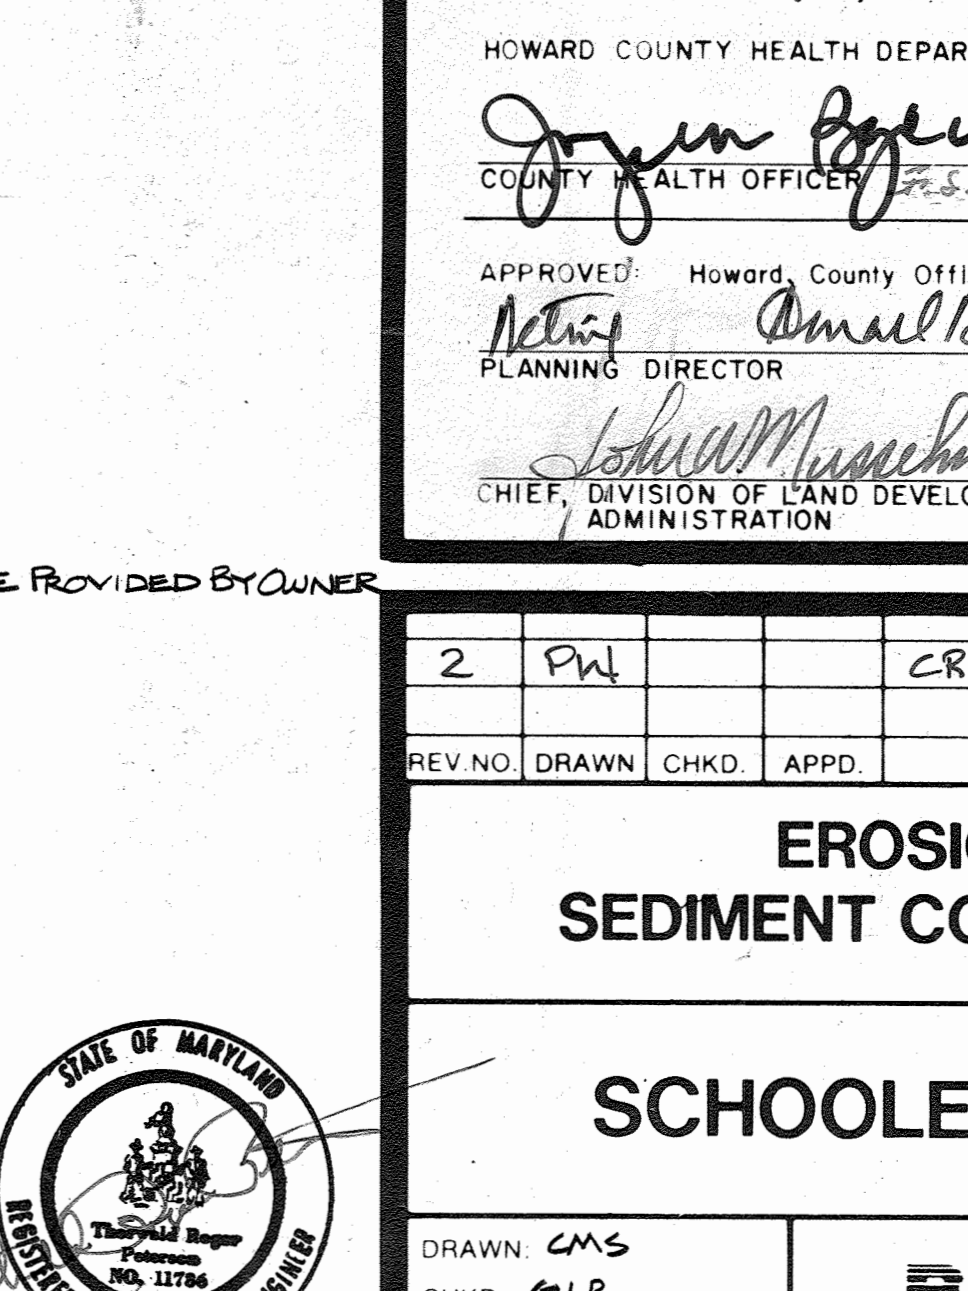 HOWARD COUNTY HEALTH DEPAR
COUNTY HEALTH OFFICER
APPROVED: Howard County Offi
Acting
PLANNING DIRECTOR
John W. Musselm
CHIEF, DIVISION OF LAND DEVELO
ADMINISTRATION
E PROVIDED BY OWNER
2 PW CR
REV.NO. DRAWN CHKD. APPD.
EROSIO
SEDIMENT CO
SCHOOLE
STATE OF MARYLAND
REGISTERE GINEER
Thorwald Roger
Petersen
NO. 11786
DRAWN: CMS